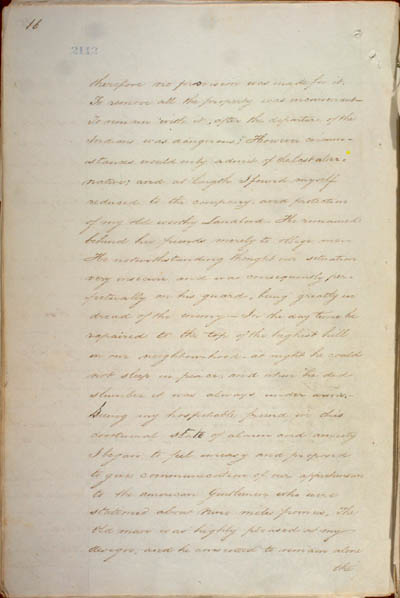 16
2112
therefore no provision was made for it.
To remove all the property was inconvenient
To remain with it, after the departure of the
Indians was dangerous; However circum-
stances would only admit of the last alter-
native; and at length I found myself
reduced to the company and protection
of my old worthy Landlord. He remained
behind his friends merely to oblige me—
He notwithstanding thought our situation
very insecure and was consequently per-
petually on his guard, being greatly in
dread of the enemy— In the day time he
repaired to the top of the highest hill
in our neighbourhood— at night he could
not sleep in peace, and when he did
slumber it was always under arms.
Seeing my hospitable friend in this
continual state of alarm and anxiety
I began to feel uneasy and proposed
to give communication of our apprehensions
to the American Gentlemen who were
stationed about nine miles from us. The
Old man was highly pleased at my
design, and he consented to remain alone
the